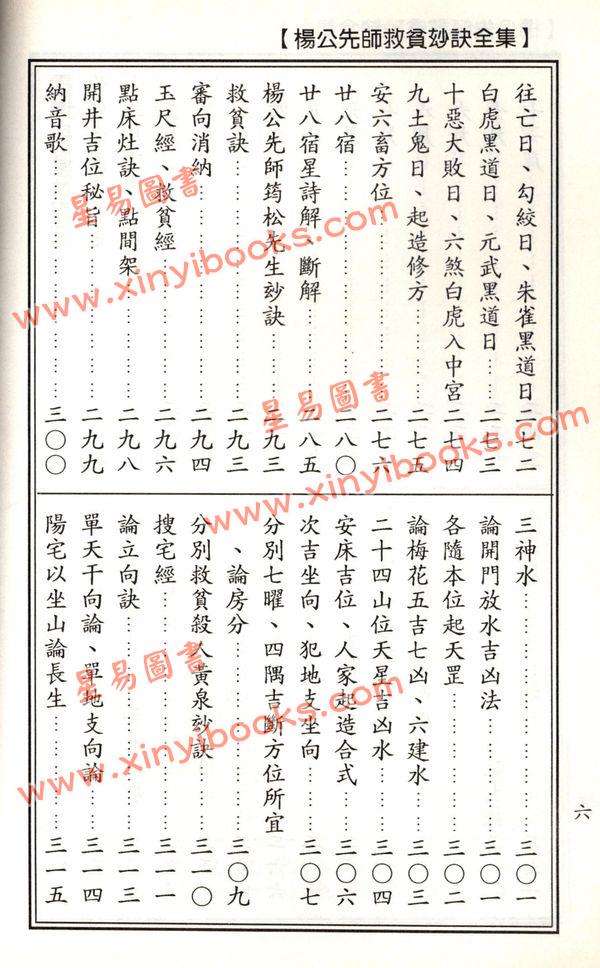 【楊公先師救貧竗訣全集】
往亡日、勾絞日、朱雀黑道日二七二
白虎黑道日、元武黑道日……二七三
十惡大敗日、六煞白虎入中宮二七四
九土鬼日、起造修方……二七五
安六畜方位……二七六
廿八宿……二八〇
廿八宿星詩解、斷解……二八五
楊公先師筠松先生竗訣……二九三
救貧訣……二九三
審向消納……二九四
玉尺經、救貧經……二九六
點床灶訣、點間架……二九八
開井吉位秘旨……二九九
納音歌……三〇〇
三神水……三〇一
論開門放水吉凶法……三〇一
各隨本位起天罡……三〇二
論梅花五吉七凶、六建水……三〇三
二十四山位天星吉凶水……三〇四
安床吉位、人家起造合式……三〇六
次吉坐向、犯地支坐向……三〇七
分別七曜、四隅吉斷方位所宜
、論房分……三〇九
分別救貧殺人黃泉竗訣……三一〇
搜宅經……三一一
論立向訣……三一三
單天干向論、單地支向論……三一四
陽宅以坐山論長生……三一五
六
星易圖書
www.xinyibooks.com
星易圖書
www.xinyibooks.com
星易圖書
www.xinyibooks.com